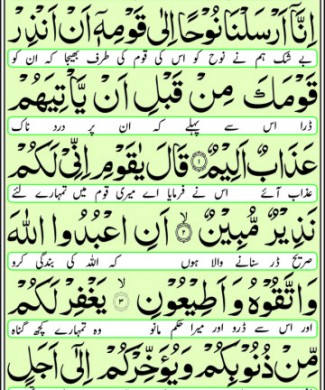 اِنَّاۤ اَرْسَلْنَا نُوْحًا اِلٰى قَوْمِهٖۤ اَنْ اَنْذِرْ
بے شک ہم نے نوح کو اس کی قوم کی طرف بھیجا کہ ان کو
قَوْمَكَ مِنْ قَبْلِ اَنْ يَّاْتِيَهُمْ
ڈرا اس سے پہلے کہ ان پر درد ناک
عَذَابٌ اَلِيْمٌ ۝۱ قَالَ يٰقَوْمِ اِنِّىْ لَكُمْ
عذاب آئے اس نے فرمایا اے میری قوم میں تمہارے لئے
نَذِيْرٌ مُّبِيْنٌ ۝۲ۙ اَنِ اعْبُدُوا اللّٰهَ
صریح ڈر سنانے والا ہوں کہ اللہ کی بندگی کرو
وَاتَّقُوْهُ وَاَطِيْعُوْنِ ۝۳ۙ يَغْفِرْ لَكُمْ
اور اس سے ڈرو اور میرا حکم مانو وہ تمہارے کچھ گناہ
مِّنْ ذُنُوْبِكُمْ وَيُؤَخِّرْكُمْ اِلٰٓى اَجَلٍ